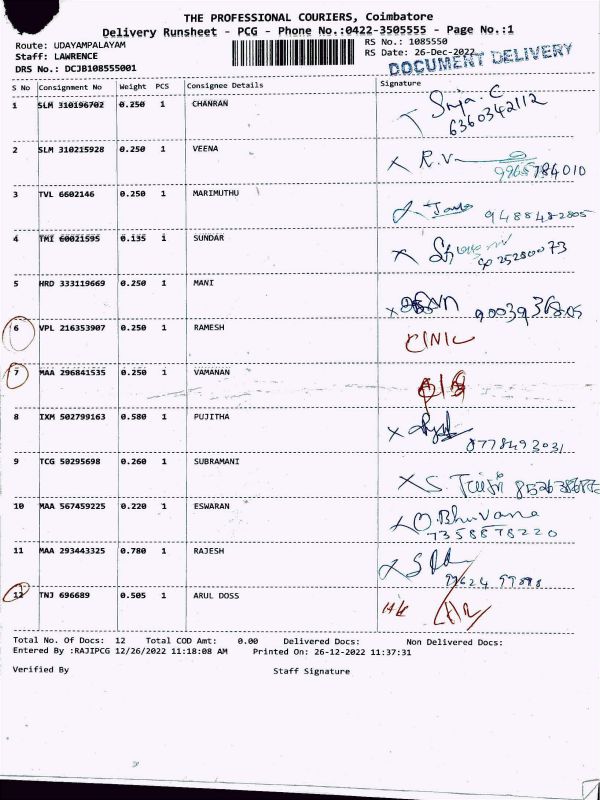 THE PROFESSIONAL COURIERS, Coimbatore
Delivery Runsheet - PCG - Phone No.:0422-3505555 - Page No.:1
Route: UDAYAMPALAYAM RS No.: 1085550
Staff: LAWRENCE RS Date: 26-Dec-2022
DRS No.: DCJB108555001 DOCUMENT DELIVERY
S No Consignment No Weight PCS Consignee Details Signature
1 SLM 310196702 0.250 1 CHANRAN
6360342112
2 SLM 310215928 0.250 1 VEENA R.V
9965784010
3 TVL 6602146 0.250 1 MARIMUTHU
9488482805
4 TMI 60021595 0.135 1 SUNDAR
9025280073
5 HRD 333119669 0.250 1 MANI
6 VPL 216353907 0.250 1 RAMESH
CINIC
7 MAA 296841535 0.250 1 VAMANAN
8 IXM 502799163 0.580 1 PUJITHA
8778493031
9 TCG 50295698 0.260 1 SUBRAMANI
10 MAA 567459225 0.220 1 ESWARAN O.Bhuvana
7358878220
11 MAA 293443325 0.780 1 RAJESH
12 TNJ 696689 0.505 1 ARUL DOSS
Total No. Of Docs: 12 Total COD Amt: 0.00 Delivered Docs: Non Delivered Docs:
Entered By :RAJIPCG 12/26/2022 11:18:08 AM Printed On: 26-12-2022 11:37:31
Verified By Staff Signature